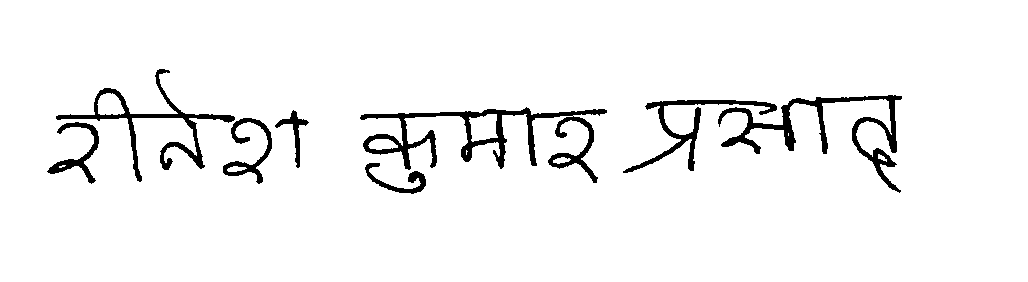 रीतेश कुमार प्रसाद